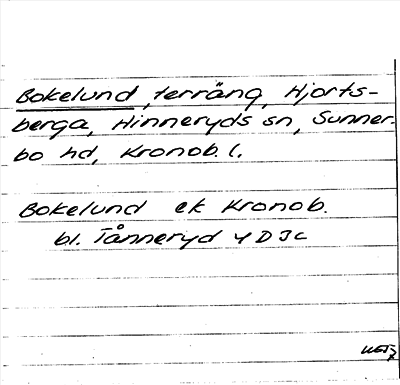 Bokelund, terräng, Hjorts-
berga, Hinneryds sn, Sunner-
bo hd, Kronob. l.
Bokelund ek Kronob.
bl. Tånneryd 4D Jc